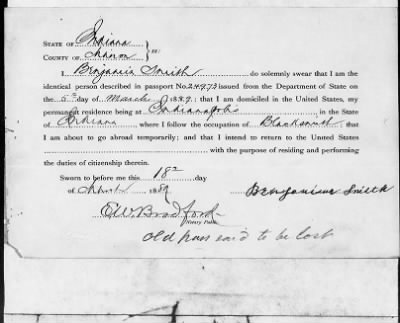 STATE OF Indiana
COUNTY OF Marion } ss:
I Benjamin Smith do solemnly swear that I am the
identical person described in passport No. 24973 issued from the Department of State on
the 5th day of March 1889: that I am domiciled in the United States, my
permanent residence being at Indianapolis in the State
of Indiana, where I follow the occupation of Blacksmith that
I am about to go abroad temporarily; and that I intend to return to the United States
with the purpose of residing and performing
the duties of citizenship therein.
Sworn to before me this 18th day
of 1889
Benjamin Smith
E.W. Bradford
Notary Public.
Old pass said to be lost